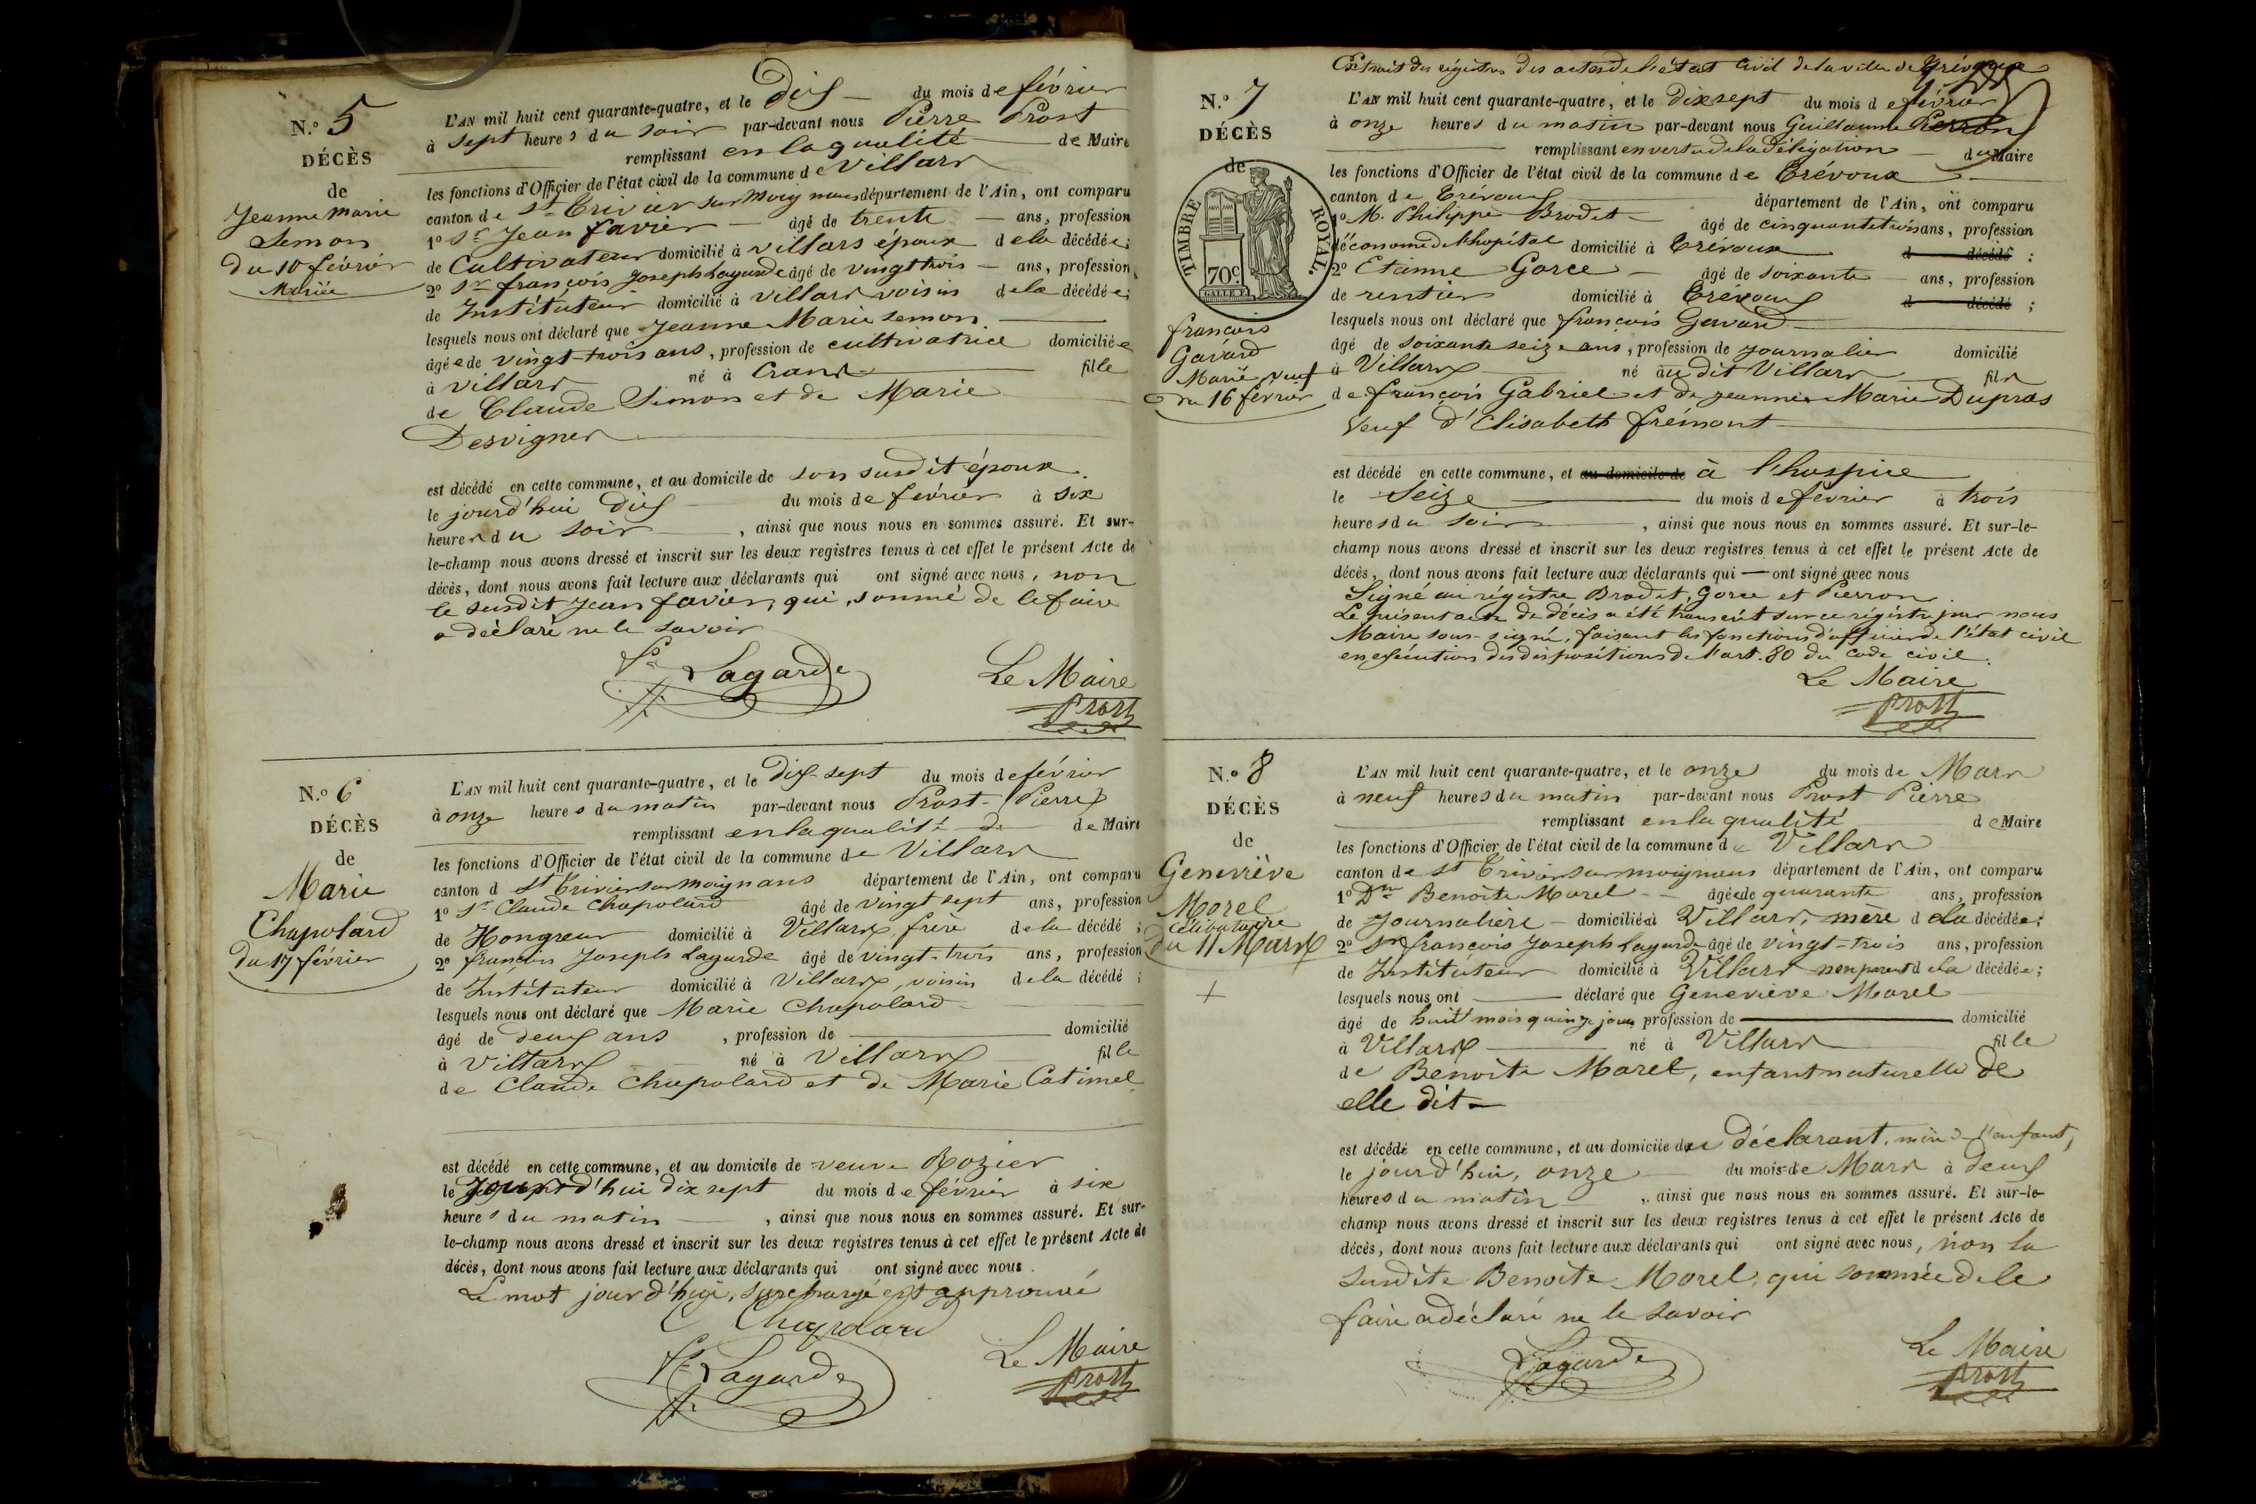 N.o 5
DÉCÈS
de
Jeanne Marie
Semon
Du 10 février
Mariée
L'AN mil huit cent quarante-quatre, et le Dix du mois de février
à sept heures du soir par-devant nous Pierre Prost
remplissant en la qualité de Maire
les fonctions d'Officier de l'état civil de la commune de Villars
canton de St Trivier sur Moignans département de l'Ain, ont comparu
1o Sr Jean favier âgé de trente ans, profession
de Cultivateur domicilié à villars époux de la décédée;
2o Sr françois Joseph Lagarde âgé de vingt trois ans, profession
de Instituteur domicilié à villars voisin de la décédée;
lesquels nous ont déclaré que Jeanne Marie Semon
âgée de vingt-trois ans, profession de cultivatrice domiciliée
à villars né à Crans fille
de Claude Simon et de Marie
Desvignes
est décédé en cette commune, et au domicile de son susdit époux
le jourd'hui Dix du mois de février à six
heures du soir, ainsi que nous nous en sommes assuré. Et sur-
le-champ nous avons dressé et inscrit sur les deux registres tenus à cet effet le présent Acte de
décès, dont nous avons fait lecture aux déclarants qui ont signé avec nous, non
le susdit Jean favier, qui, sommé de le faire
a déclaré ne le savoir
Lagarde
Le Maire
Prost
N.o 6
DÉCÈS
de
Marie
Chapolard
Du 17 février
L'AN mil huit cent quarante-quatre, et le Dix-sept du mois de février
à onze heures du matin par-devant nous Prost Pierre
remplissant en la qualité de de Maire
les fonctions d'Officier de l'état civil de la commune de Villars
canton d St Trivier sur moignans département de l'Ain, ont comparu
1o Sr Claude Chapolard âgé de vingt sept ans, profession
de Hongreur domicilié à Villars, frère de la décédé;
2o françois Joseph Lagarde âgé de vingt-trois ans, profession
de Instituteur domicilié à Villars, voisin de la décédé;
lesquels nous ont déclaré que Marie Chapolard
âgé de deux ans, profession de domicilié
à Villars né à Villars fille
de Claude Chapolard et de Marie Catimel
est décédé en cette commune, et au domicile de veuve Rozier
le jourd'hui dix sept du mois de février à six
heures du matin, ainsi que nous nous en sommes assuré. Et sur-
le-champ nous avons dressé et inscrit sur les deux registres tenus à cet effet le présent Acte de
décès, dont nous avons fait lecture aux déclarants qui ont signé avec nous.
Le mot jourd'hui, surchargé est approuvé
Chapolard
Lagarde
Le Maire
Prost
Extrait des régistres des actes de l'état civil de la ville de Trévoux
N.o 7
DÉCÈS
de
TIMBRE ROYAL.
70c.
françois
Gavard
Marié veuf
du 16 février
L'AN mil huit cent quarante-quatre, et le dixsept du mois de février
à onze heures du matin par-devant nous Guillaume Pierron
remplissant en vertu de la délégation du Maire
les fonctions d'Officier de l'état civil de la commune de Trévoux
canton de Trévoux département de l'Ain, ont comparu
1o M. Philippe Brodet âgé de cinquante trois ans, profession
d'économe de l'hopital domicilié à Trévoux d décédé;
2o Etienne Gorce âgé de soixante ans, profession
de rentier domicilié à Trévoux d décédé;
lesquels nous ont déclaré que françois Gavard
âgé de soixante seize ans, profession de journalier domicilié
à Villars né au dit Villars fils
de françois Gabriel et de Jeanne Marie Dupras
Veuf d'Elisabeth frémont
est décédé en cette commune, et au domicile de à l'hospice
le Seize du mois de février à trois
heures du soir, ainsi que nous nous en sommes assuré. Et sur-le-
champ nous avons dressé et inscrit sur les deux registres tenus à cet effet le présent Acte de
décès, dont nous avons fait lecture aux déclarants qui ont signé avec nous
Signé au régistre Brodet, Gorce et Pierron.
Le présent acte de décès a été transcrit sur ce régistre par nous
Maire sous-signé, faisant les fonctions d'officier de l'état civil
en exécution des dispositions de l'art. 80 du Code civil.
Le Maire
Prost
N.o 8
DÉCÈS
de
Geneviève
Morel
Célibataire
Du 11 Mars
L'AN mil huit cent quarante-quatre, et le onze du mois de Mars
à neuf heures du matin par-devant nous Prost Pierre
remplissant en la qualité de Maire
les fonctions d'Officier de l'état civil de la commune de Villars
canton de St Trivier sur moignans département de l'Ain, ont comparu
1o Dme Benoite Morel âgée de quarante ans, profession
de Journalière domiciliée à Villars, mère de la décédée;
2o Sr françois Joseph Lagarde âgé de vingt-trois ans, profession
de Instituteur domicilié à Villars non parent de la décédée;
lesquels nous ont déclaré que Geneviève Morel
âgé de huit mois quinze jours profession de domicilié
à Villars né à Villars fille
de Benoite Morel, enfant naturelle de
elle dit
est décédé en cette commune, et au domicile de déclarant, mère de l'enfant,
le jourd'hui, onze du mois de Mars à deux
heures du matin, ainsi que nous nous en sommes assuré. Et sur-le-
champ nous avons dressé et inscrit sur les deux registres tenus à cet effet le présent Acte de
décès, dont nous avons fait lecture aux déclarants qui ont signé avec nous, non la
susdite Benoite Morel, qui sommée de le
faire a déclaré ne le savoir
Lagarde
Le Maire
Prost